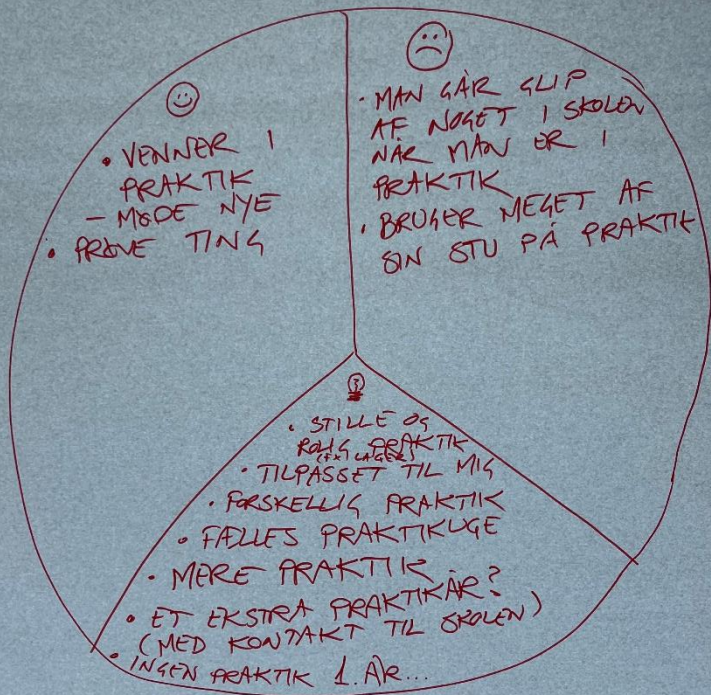 • VENNER I
PRAKTIK
– MØDE NYE
• PRØVE TING
• MAN GÅR GLIP
AF NOGET I SKOLEN
NÅR MAN ER I
PRAKTIK
• BRUGER MEGET AF
SIN STU PÅ PRAKTIK
• STILLE OG
ROLIG PRAKTIK
(FX LAGER)
• TILPASSET TIL MIG
• FORSKELLIG PRAKTIK
• FÆLLES PRAKTIKUGE
• MERE PRAKTIK
• ET EKSTRA PRAKTIKÅR?
(MED KONTAKT TIL SKOLEN)
• INGEN PRAKTIK 1. ÅR...